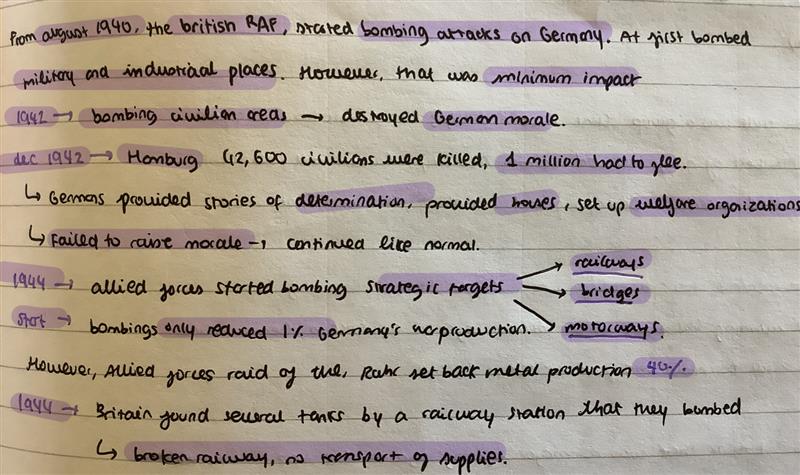 From august 1940, the british RAF, started bombing attacks on Germany. At first bombed
military and industriaal places. However, that was minimum impact
1942 → bombing civilian areas → destroyed German morale.
dec 1942 → Hamburg 42,600 civilians were killed, 1 million had to flee.
↳ Germans provided stories of determination, provided houses, set up welfare organizations
↳ Failed to raise morale → continued like normal.
1944 → allied forces started bombing strategic targets → railways
→ bridges
→ motorways.
start → bombings only reduced 1% Germany's warproduction.
However, Allied forces raid of the, Ruhr set back metal production 40%
1944 → Britain found several tanks by a railway station that they bombed
↳ broken railway, no transport of supplies.